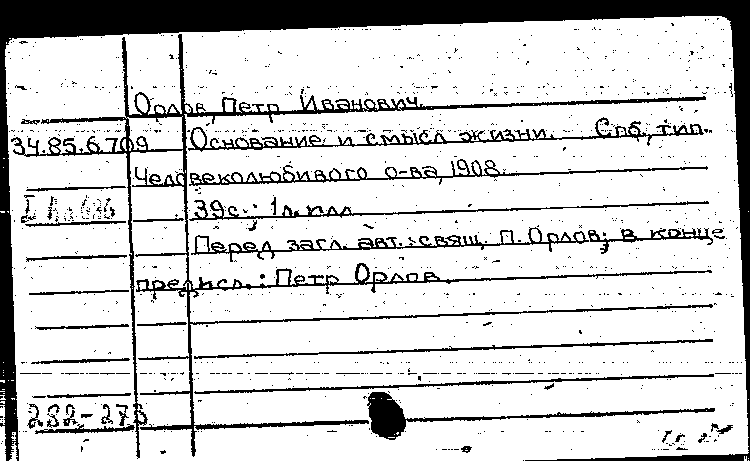 Орлов, Петр Иванович.
34.85.6.709 Основание и смысл жизни. Спб, тип.
Человеколюбивого о-ва, 1908.
39с.; 1л. илл.
Перед загл. авт.: свящ. П. Орлов; в конце
предисл.: Петр Орлов.
282-273